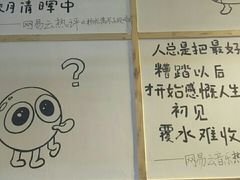 月清晖中
——网易云热评
?
人总是把最好
糟踏以后
才开始感慨人生
初见
覆水难收
——网易云音乐热